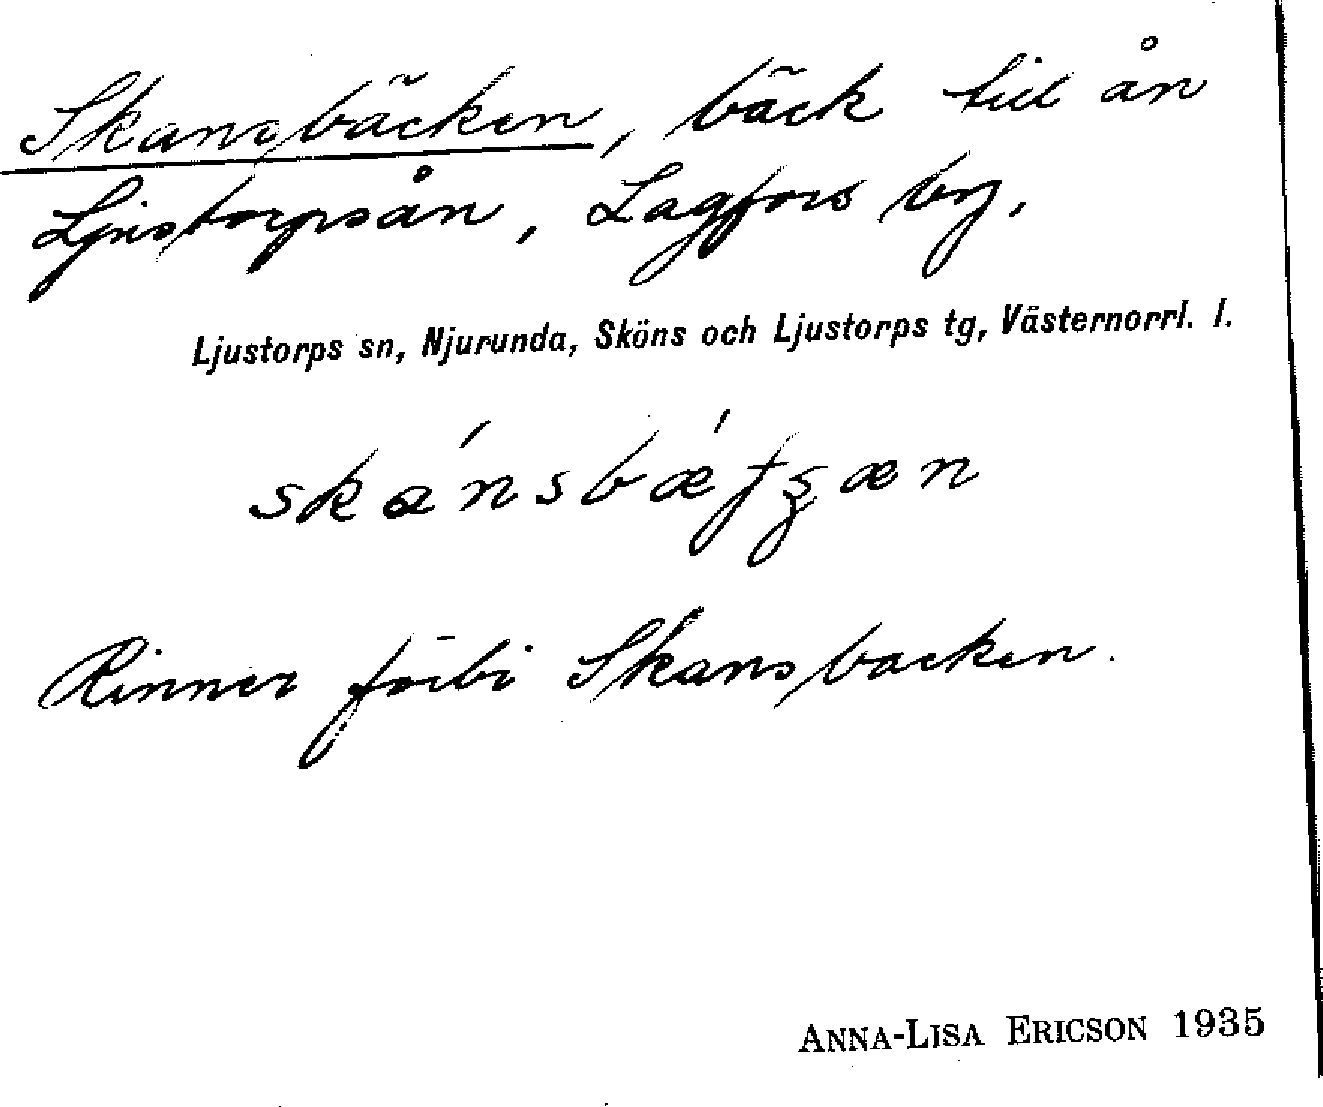 Skansbäcken, bäck till ån
Ljustorpsån, Lagfors by,
Ljustorps sn, Njurunda, Sköns och Ljustorps tg, Västernorrl. l.
Rinner förbi Skansbacken.
ANNA-LISA ERICSON 1935